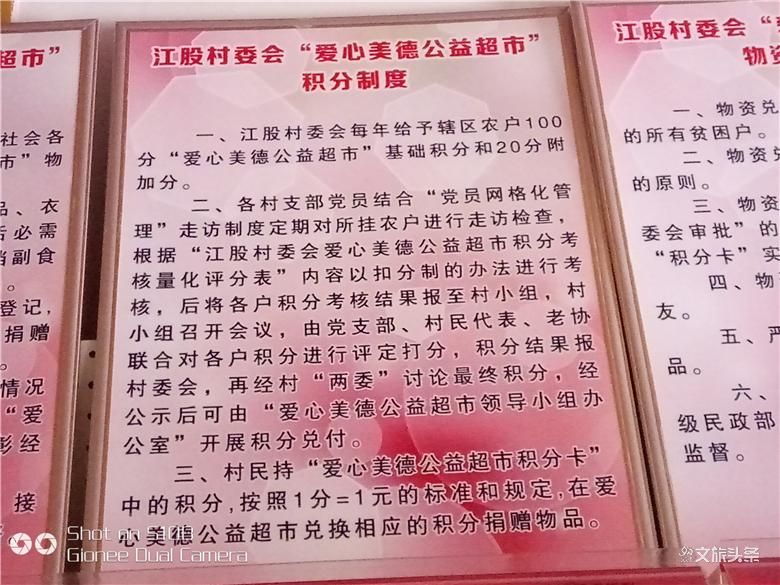 超市”
社会各
市”物
品、衣
后必需
当副食
。
登记,
捐赠
情况
“爱
彭经
接
江股村委会“爱心美德公益超市”
积分制度
一、江股村委会每年给予辖区农户100
分“爱心美德公益超市”基础积分和20分附
加分。
二、各村支部党员结合“党员网格化管
理”走访制度定期对所挂农户进行走访检查，
根据“江股村委会爱心美德公益超市积分考
核量化评分表”内容以扣分制的办法进行考
核，后将各户积分考核结果报至村小组，村
小组召开会议，由党支部、村民代表、老协
联合对各户积分进行评定打分，积分结果报
村委会，再经村“两委”讨论最终积分，经
公示后可由“爱心美德公益超市领导小组办
公室”开展积分兑付。
三、村民持“爱心美德公益超市积分卡”
中的积分,按照1分=1元的标准和规定,在爱
心美德公益超市兑换相应的积分捐赠物品。
江股村委会“
物资
一、物资兑
的所有贫困户。
二、物资兑
的原则。
三、物资
委会审批”的
“积分卡”实
四、物
友。
五、严
品。
六、
级民政部
监督。
Shot on S10
Gionee Dual Camera
文旅头条